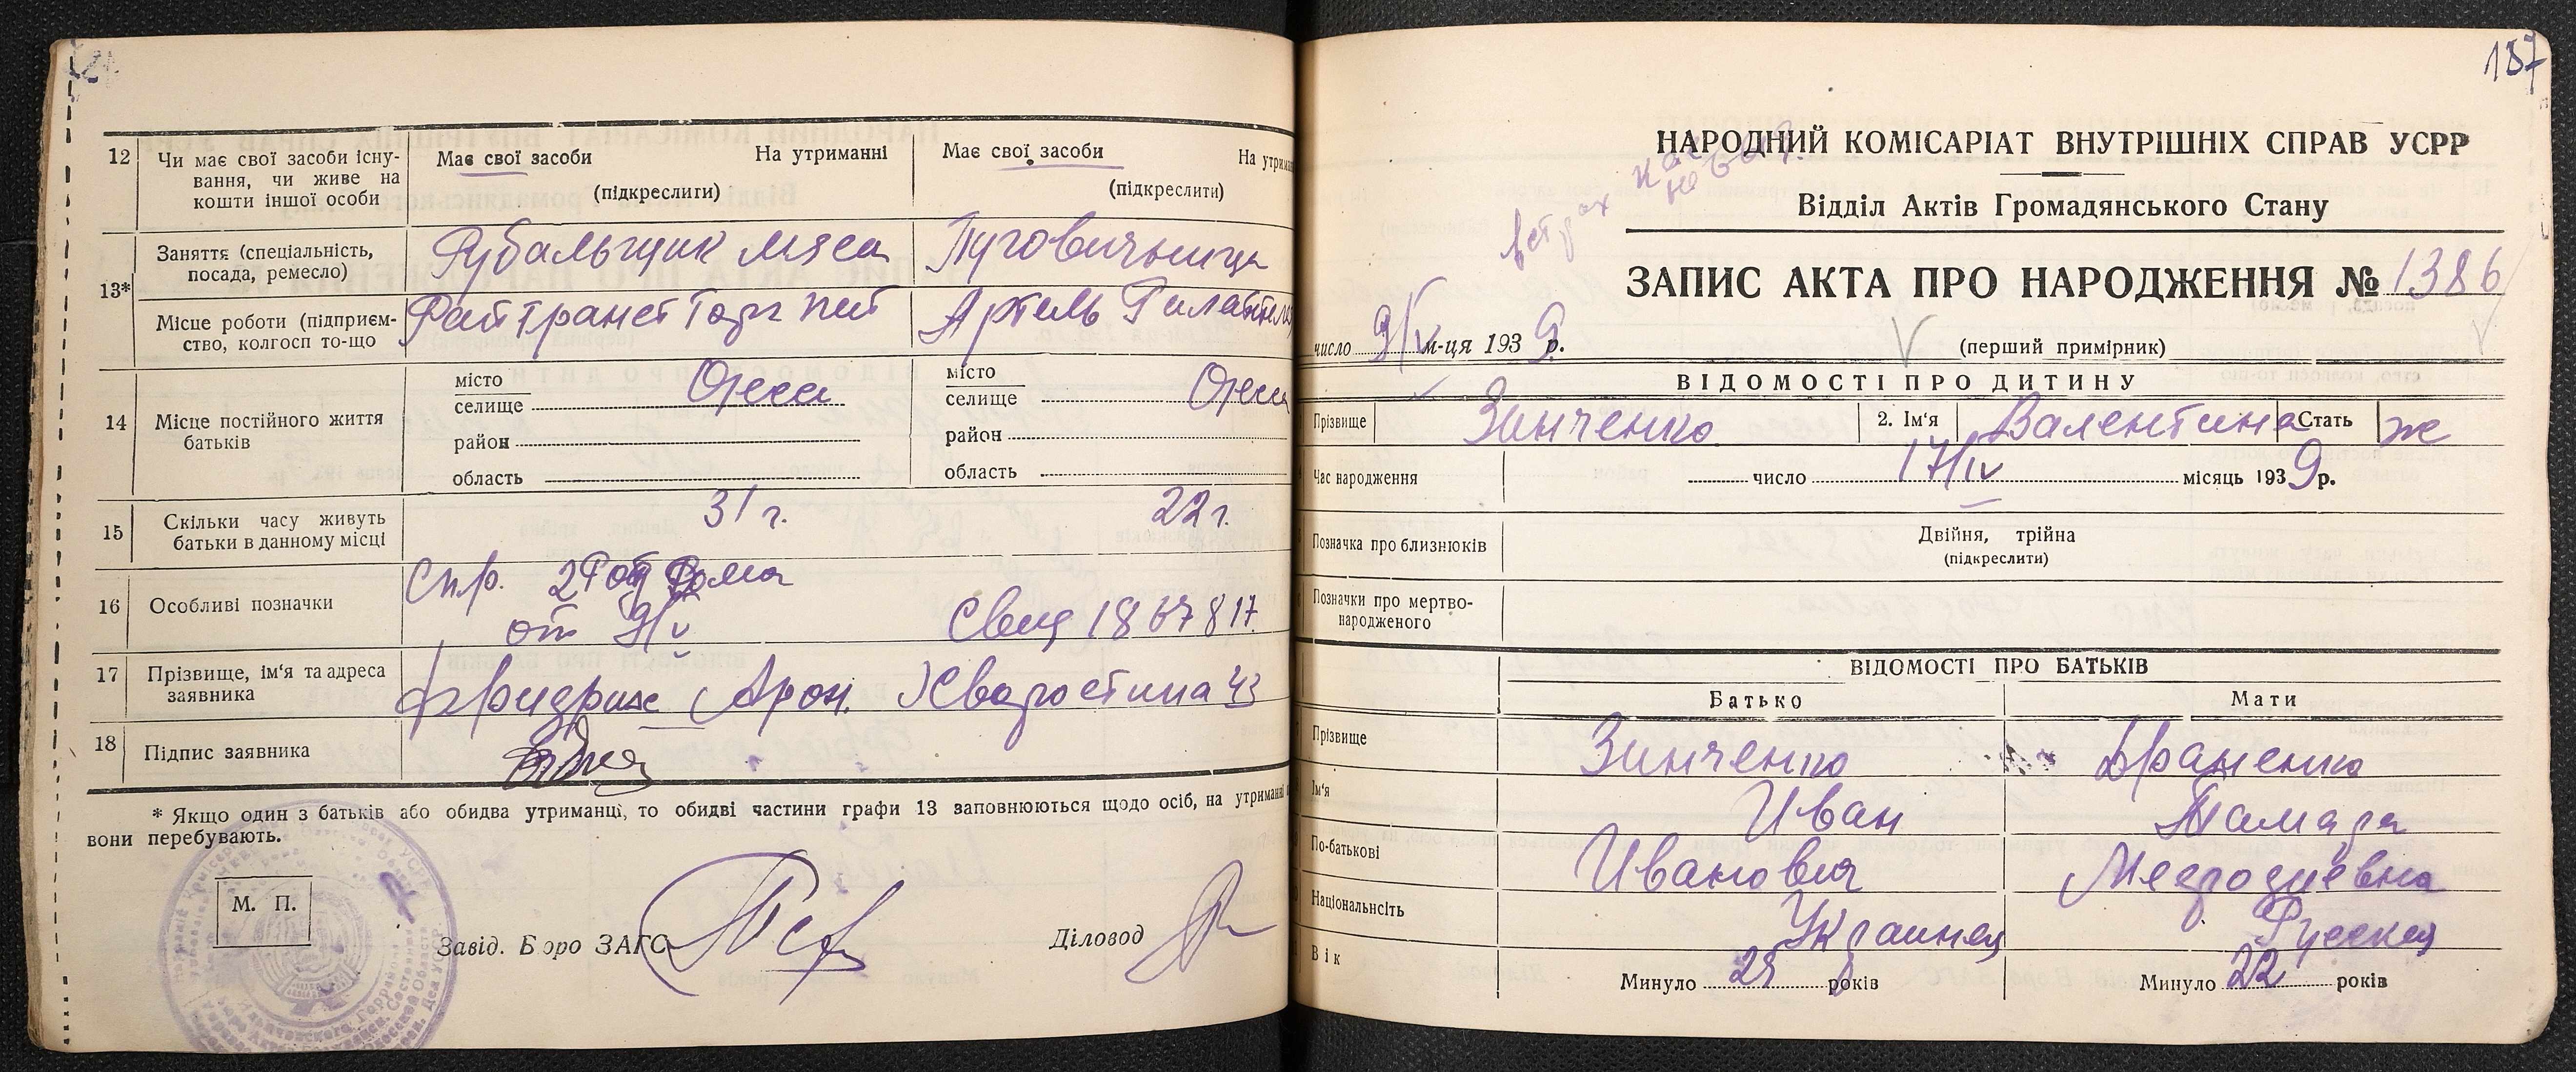 12 Чи має свої засоби існу-
вання, чи живе на
кошти іншої особи
Має свої засоби На утриманні
(підкреслити)
Має свої засоби На утрим
(підкреслити)
13* Заняття (спеціальність,
посада, ремесло)
Рубальщик мяса
Пуговичница
Місце роботи (підприєм-
ство, колгосп то-що
Артель
14 Місце постійного життя
батьків
місто Одесса
селище
район
область
місто Одесса
селище
район
область
15 Скільки часу живуть
батьки в данному місці
31 г. 22 г.
16 Особливі позначки
Спр. 2 Род Дома
от 9/V Свид 1867817
17 Прізвище, ім'я та адреса
заявника
Арон. Хворостина 43
18 Підпис заявника
* Якщо один з батьків або обидва утриманці, то обидві частини графи 13 заповнюються щодо осіб, на утриманні
вони перебувають.
М. П.
Завід. Бюро ЗАГС
Діловод
187
НАРОДНИЙ КОМІСАРІАТ ВНУТРІШНІХ СПРАВ УСРР
Відділ Актів Громадянського Стану
ЗАПИС АКТА ПРО НАРОДЖЕННЯ № 1386
число 9/V м-ця 1939 р.
(перший примірник)
ВІДОМОСТІ ПРО ДИТИНУ
Прізвище Зинченко 2. Ім'я Валентина Стать ж
Час народження число 17/IV місяць 1939 р.
Позначка про близнюків
Двійня, трійна
(підкреслити)
Позначки про мертво-
народженого
ВІДОМОСТІ ПРО БАТЬКІВ
Батько Мати
Прізвище Зинченко Браненко
Ім'я Иван Тамара
По-батькові Иванович
Національність Украинец Русская
Вік
Минуло років
Минуло 22 років